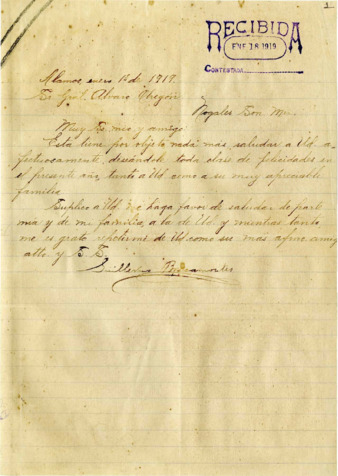 1
RECIBIDA
ENE 18 1919
CONTESTADA
Alamos enero 1o de 1919.
Sr Gral. Alvaro Obregón
Nogales Son. Mex.
Muy Sr. mio y amigo
Esta tiene por objeto nada mas saludar a Ud a-
fectuosamente, deseándole toda clase de felicidades en
el presente año, tanto a Ud como a su muy apreciable
familia.
Suplico a Ud. me haga favor de saludar de parte
mia y de mi familia, a la de Ud. y mientras tanto
me es grato repetirme de Ud como su mas afmo amigo
atto. y S. S.
Guillermo